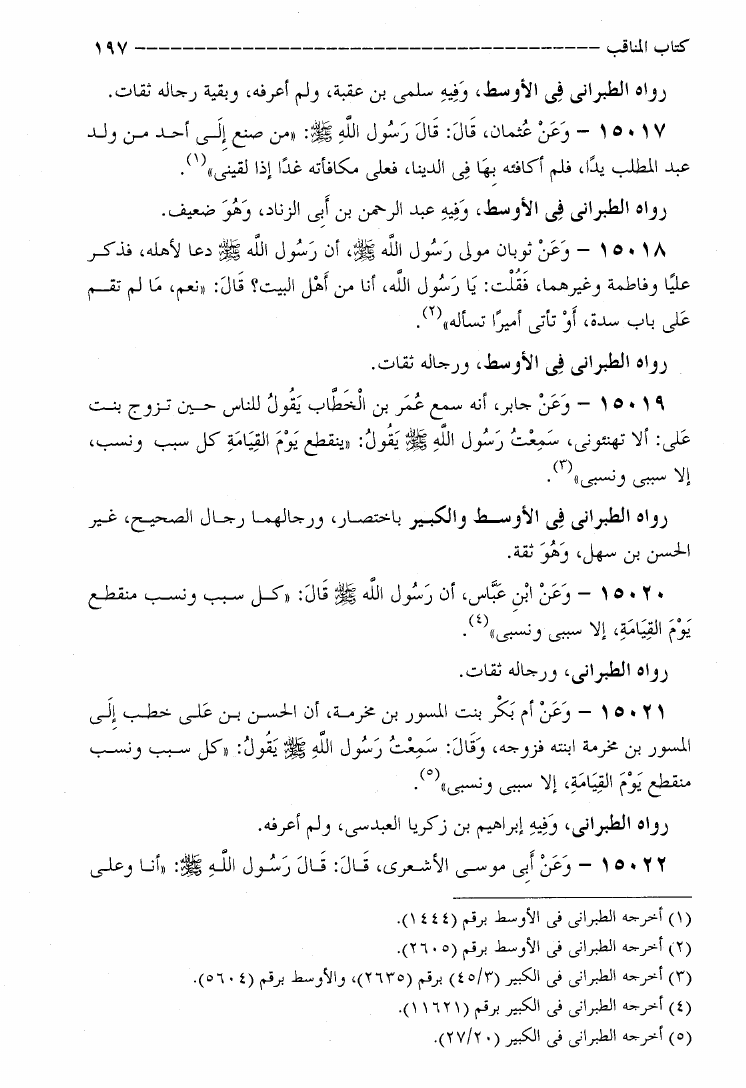 كتاب المناقب ---------------------------------------- ١٩٧
رواه الطبرانى فِى الأوسط، وَفِيهِ سلمى بن عقبة، ولم أعرفه، وبقية رجاله ثقات.
١٥٠١٧ – وَعَنْ عُثمان، قَالَ: قَالَ رَسُول اللَّهِ ﷺ: «من صنع إِلَـى أحـد مـن ولـد
عبد المطلب يدًا، فلم أكافئه بِهَا فِى الدينا، فعلى مكافأته غدًا إذا لقينى»(١).
رواه الطبرانى فِى الأوسط، وَفِيهِ عبد الرحمن بن أَبِى الزناد، وَهُوَ ضعيف.
١٥٠١٨ – وَعَنْ ثوبان مولى رَسُول اللَّهِ ﷺ، أن رَسُول اللَّه ﷺ دعا لأهله، فذكـر
عليًا وفاطمة وغيرهما، فَقُلْت: يَا رَسُول اللَّه، أنا من أَهْل البيت؟ قَالَ: «نعم، مَا لم تقـم
عَلَى باب سدة، أَوْ تأتى أميرًا تسأله»(٢).
رواه الطبرانى فِى الأوسط، ورجاله ثقات.
١٥٠١٩ – وَعَنْ جابر، أنه سمع عُمَر بن الْخَطَّاب يَقُولُ للناس حـين تـزوج بنـت
عَلى: ألا تهنئونى، سَمِعْتُ رَسُول اللَّهِ ﷺ يَقُولُ: «ينقطع يَوْمَ القِيَامَةِ كل سبب ونسب،
إلا سببى ونسبى»(٣).
رواه الطبرانى فِى الأوسـط والكبير باختصار، ورجالهمـا رجـال الصحيـح، غـير
الحسن بن سهل، وَهُوَ ثقة.
١٥٠٢٠ – وَعَنْ ابْنِ عَبَّاس، أن رَسُول اللَّه ﷺ قَالَ: «كـل سـبب ونسـب منقطـع
يَوْمَ القِيَامَةِ، إلا سببى ونسبى»(٤).
رواه الطبرانى، ورجاله ثقات.
١٥٠٢١ – وَعَنْ أم بَكْر بنت المسور بن مخرمـة، أن الحسـن بـن عَلـى خطـب إِلَـى
المسور بن مخرمة ابنته فزوجه، وَقَالَ: سَمِعْتُ رَسُول اللَّهِ ﷺ يَقُولُ: «كل سـبب ونسـب
منقطع يَوْمَ القِيَامَةِ، إلا سببى ونسبى»(٥).
رواه الطبرانى، وَفِيهِ إبراهيم بن زكريا العبدسى، ولم أعرفه.
١٥٠٢٢ – وَعَنْ أَبِى موسـى الأشـعرى، قَـالَ: قَـالَ رَسُـول اللَّـهِ ﷺ: «أنـا وعلـى
(١) أخرجه الطبرانى فى الأوسط برقم (١٤٤٤).
(٢) أخرجه الطبرانى فى الأوسط برقم (٢٦٠٥).
(٣) أخرجه الطبرانى فى الكبير (٤٥/٣) برقم (٢٦٣٥)، والأوسط برقم (٥٦٠٤).
(٤) أخرجه الطبرانى فى الكبير برقم (١١٦٢١).
(٥) أخرجه الطبرانى فى الكبير (٢٧/٢٠).